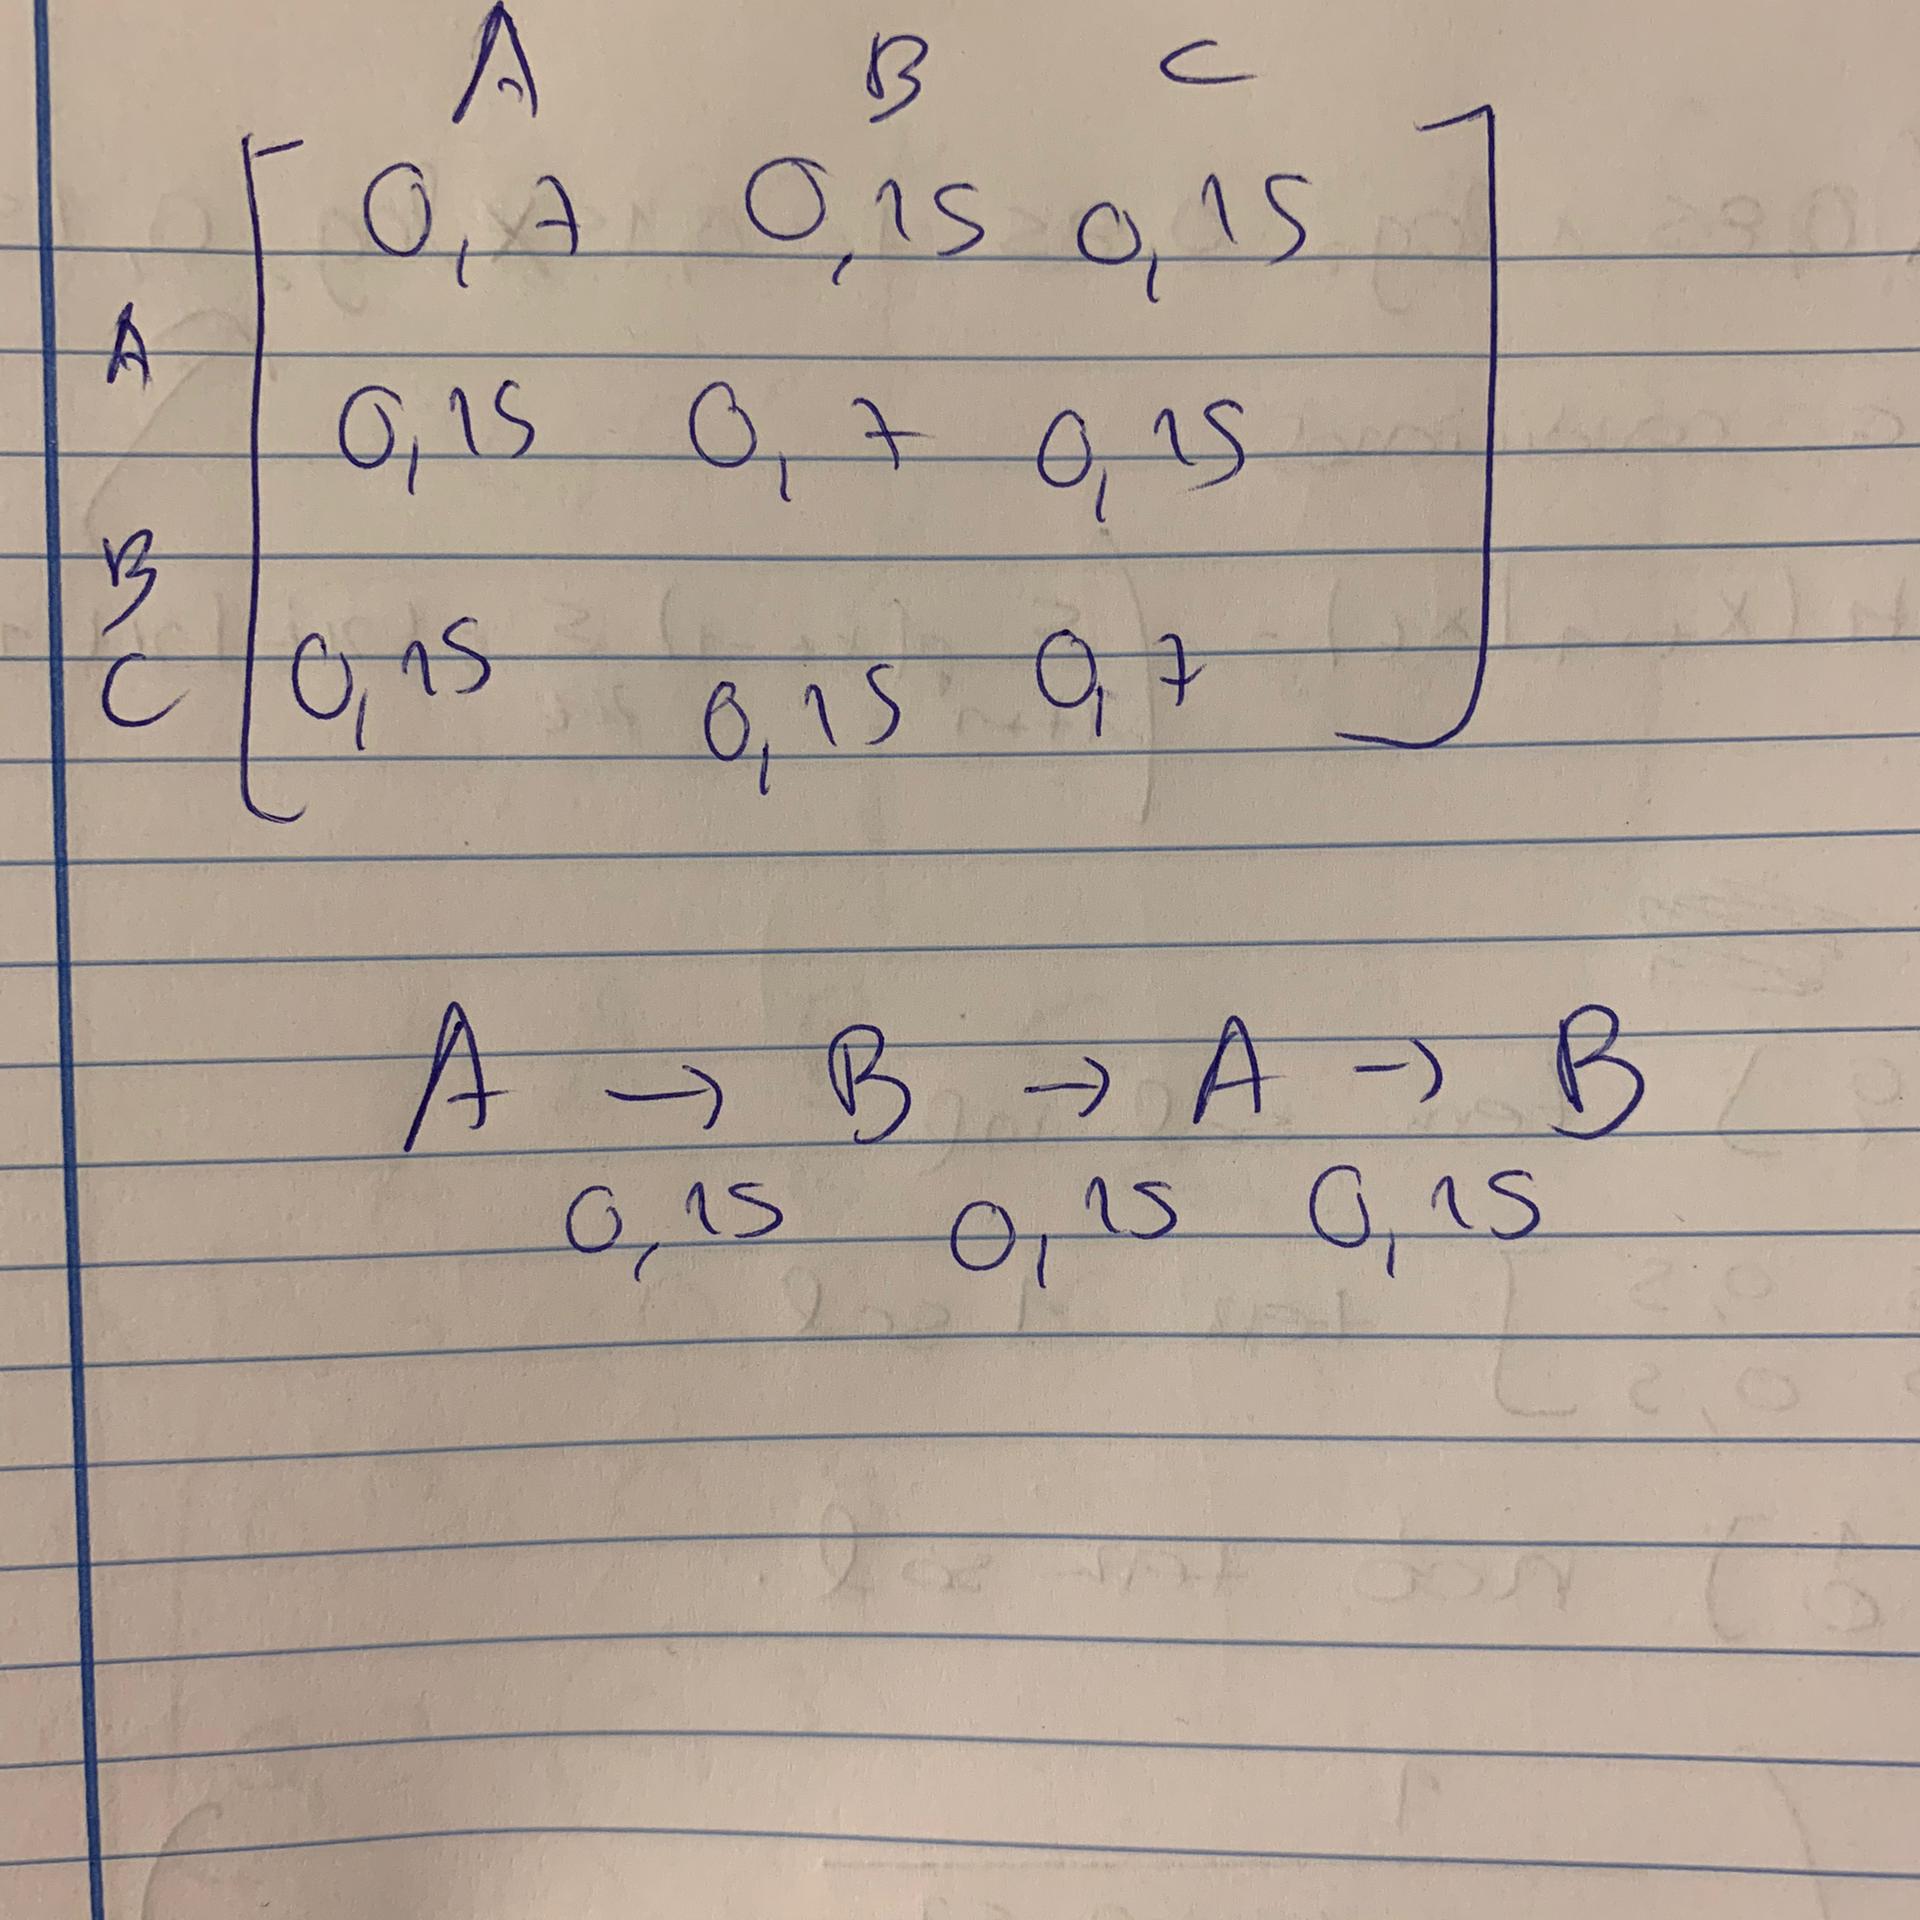 A B C
0,7 0,15 0,15
A
0,15 0,7 0,15
B
C 0,15 0,15 0,7
A → B → A → B
0,15 0,15 0,15